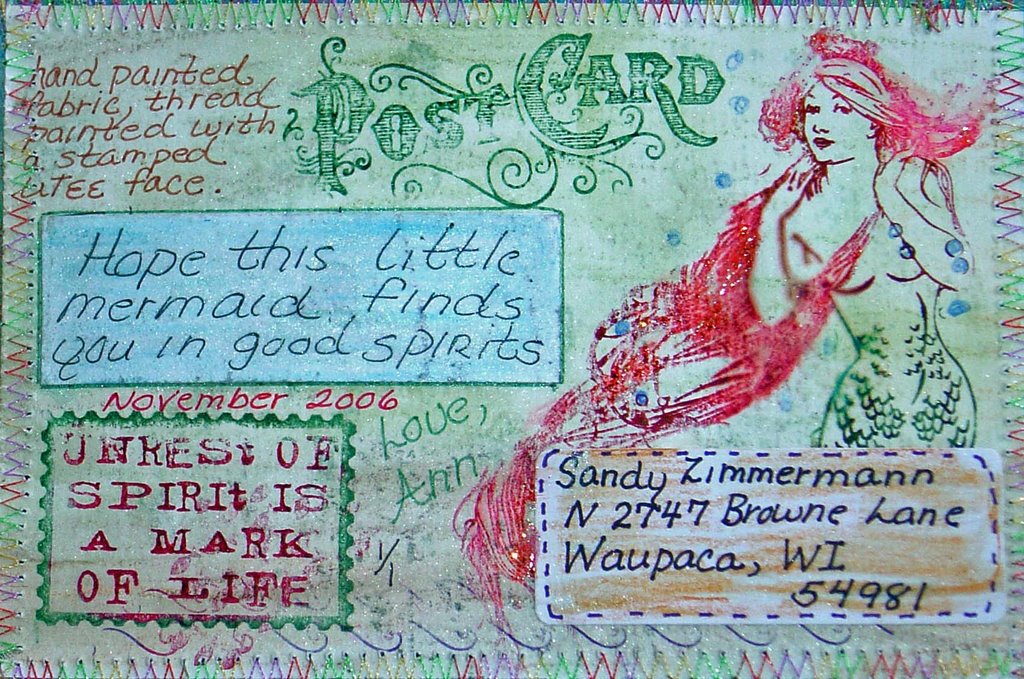 hand painted
fabric, thread
painted with
a stamped
UTEE face.
POST CARD
Hope this little
mermaid finds
you in good spirits.
November 2006
Love,
Ann
1/1
UNREST OF
SPIRIT IS
A MARK
OF LIFE
Sandy Zimmermann
N 2747 Browne Lane
Waupaca, WI
54981